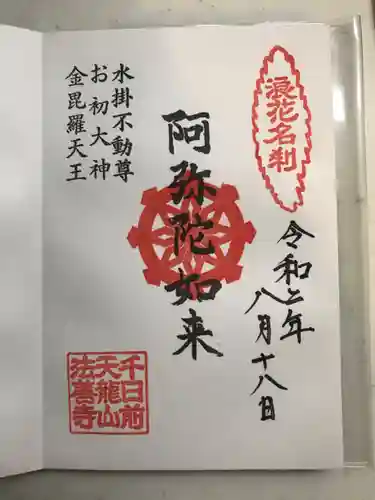 浪花名刹
令和二年
八月十八日
阿弥陀如来
水掛不動尊
お初大神
金毘羅天王
千日前
天龍山
法善寺